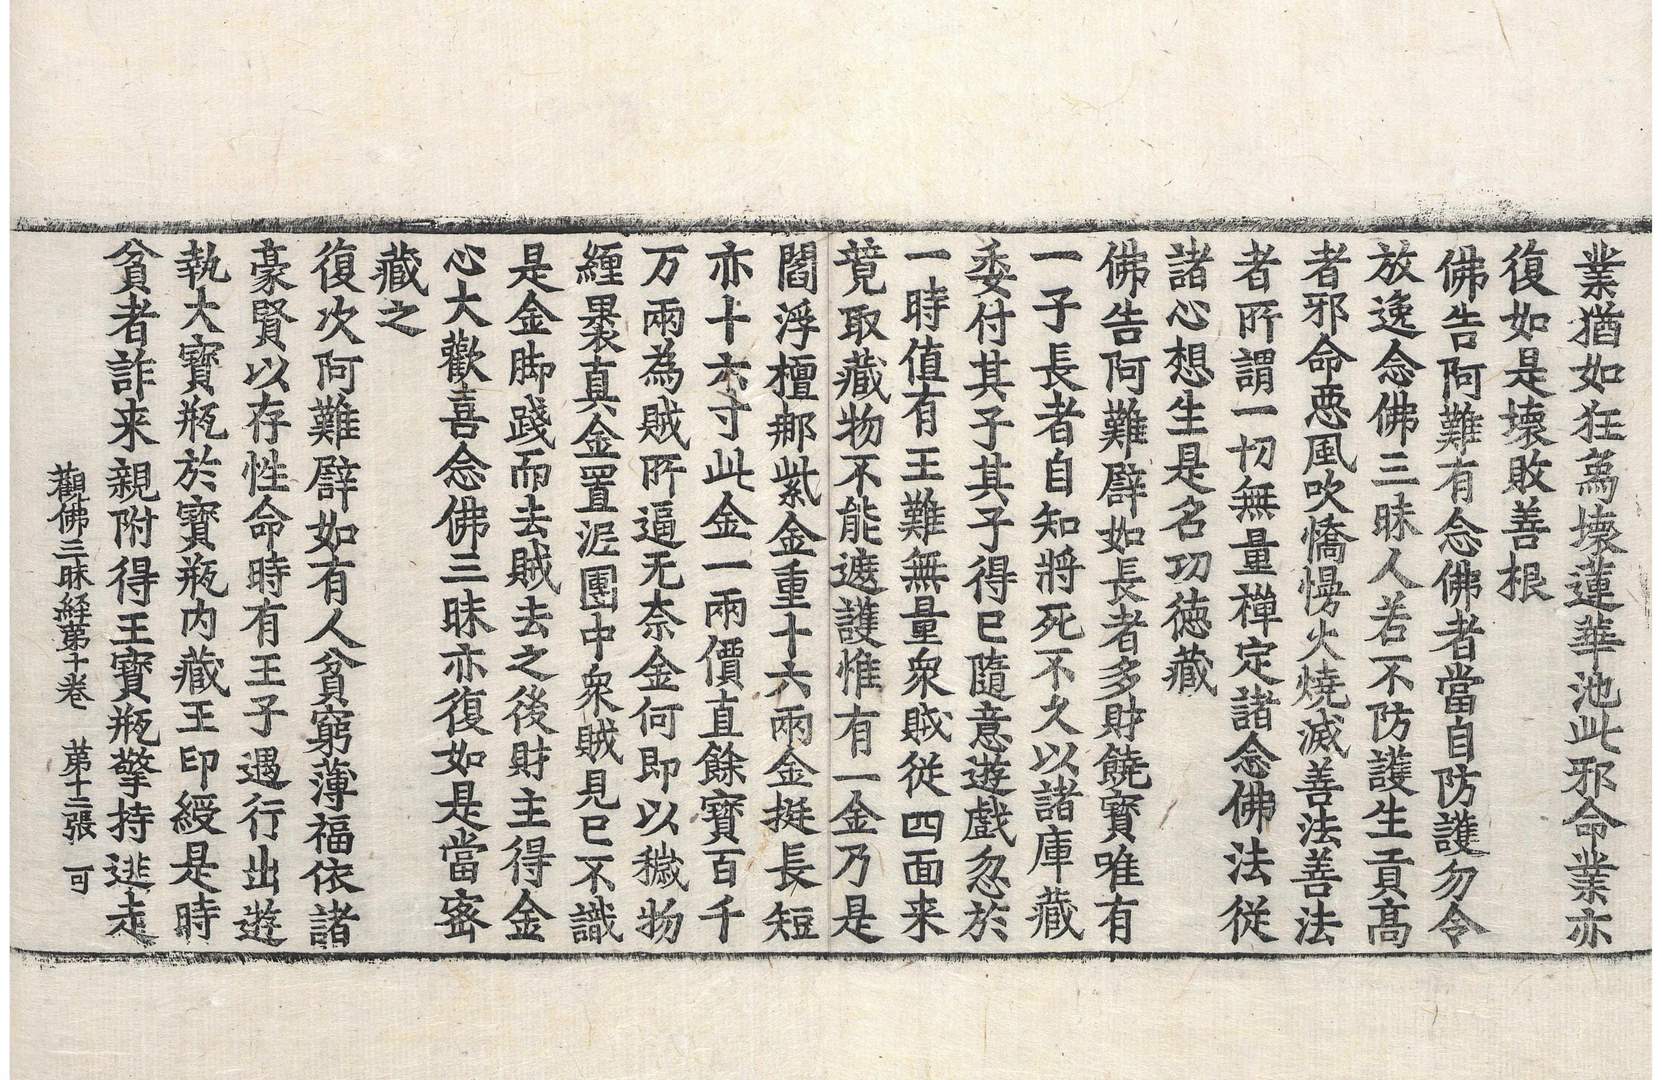 業猶如狂為壞蓮華池此邪命業亦
復如是壞敗善根
佛告阿難有念佛者當自防護勿令
放逸念佛三昧人若不防護生貢高
者邪命悪風吹憍慢火燒滅善法善法
者所謂一切無量禪定諸念佛法從
諸心想生是名功德藏
佛告阿難譬如長者多財饒寶唯有
一子長者自知將死不久以諸庫藏
委付其子其子得已隨意遊戲忽於
一時值有王難無量衆賊從四面来
競取藏物不能遮護惟有一金乃是
閻浮檀那紫金重十六兩金挺長短
亦十六寸此金一兩價直餘寶百千
万兩為賊所逼无奈金何即以穢物
纏褁真金置泥團中衆賊見已不識
是金脚踐而去賊去之後財主得金
心大歡喜念佛三昧亦復如是當密
藏之
復次阿難譬如有人貧窮薄福依諸
豪賢以存性命時有王子遇行出遊
執大寶瓶於寶瓶内藏王印綬是時
貧者詐来親附得王寶瓶擎持逃走
觀佛三昧経苐十卷　苐十二張　可